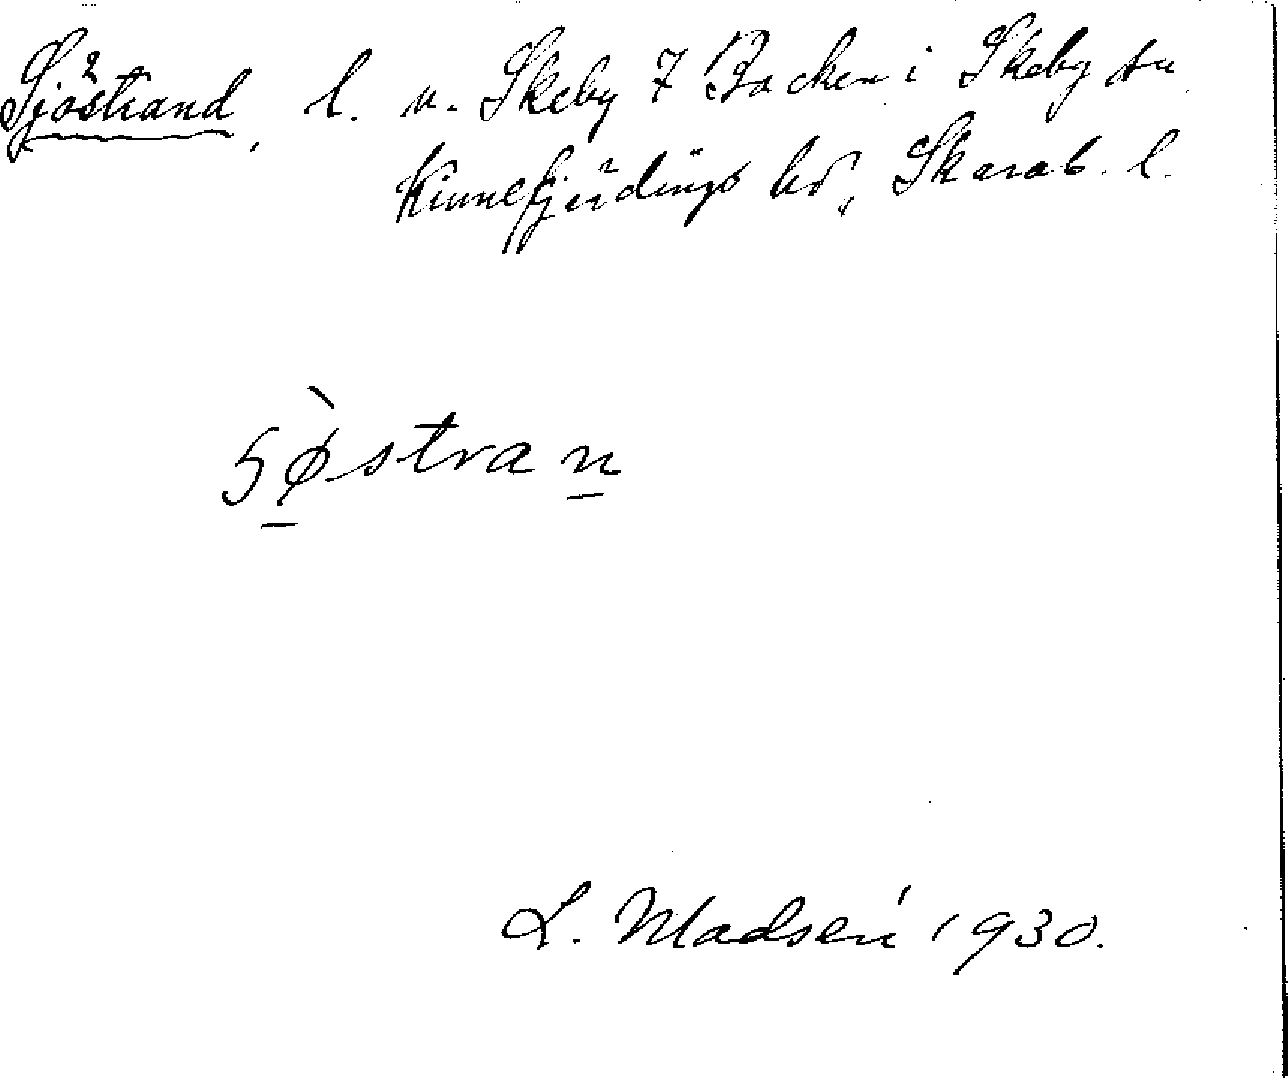 Sjöstrand, l. u. Skeby 7 Backen i Skeby sn
Kinnefjärdings hd, Skarab. l.
sø̀stran
L. Madsén 1930.